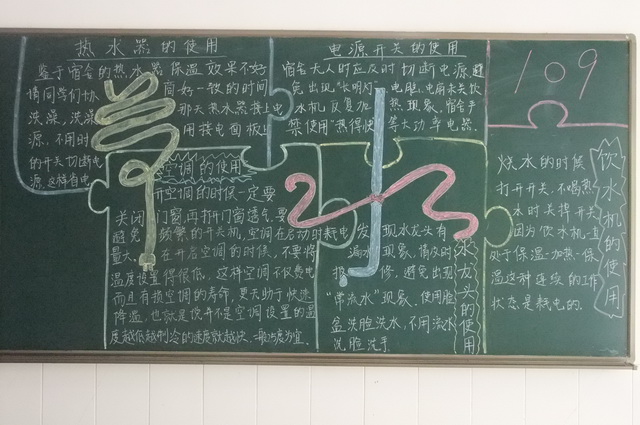 热水器的使用
鉴于宿舍的热水器保温效果不好
请同学们协 同好一致的时间
洗澡,洗澡 那天热水器接上电
源,不用时 用接电面板上
的开关切断电
源,这样省电
电源开关的使用
宿舍无人时应及时切断电源,避
免出现"长明灯" 电脑,电扇未关饮
水机反复加 热现象,宿舍严
禁使用"热得快 等大功率电器。
109
空调的使用
开空调的时候一定要
关闭 门窗再打开门窗透气。要
避免 频繁的开关机,空调在启动时耗电
量大。在开启空调的时候,不要将
温度设置得很低,这样空调不仅费电
而且有损空调的寿命,更无助于快速
降温,也就是说并不是空调设置的温
度越低越制冷的速度就越快,一般 度为宜。
水龙头的使用
发现水龙头有
漏水现象,请及时
报 修,避免出现
"常流水"现象。使用脸
盆洗脸洗水,不用流水
洗脸洗手
饮水机的使用
烧水的时候
打开开关,不喝热
水时关掉开关
因为饮水机一直
处于保温-加热-保
温这种连续的工作
状态是耗电的。